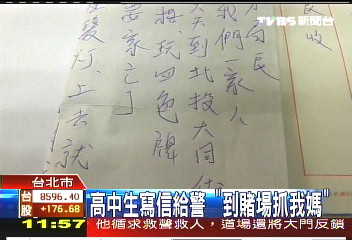 TVBS新聞台
長收
分局長
我們一家人
天天到北投大同街
拇玩四色牌
要家亡
發灯,上去就
台北市
台股 8596.40 +176.68
高中生寫信給警 "到賭場抓我媽"
11:57 他循求救聲救人,道場還將大門反鎖